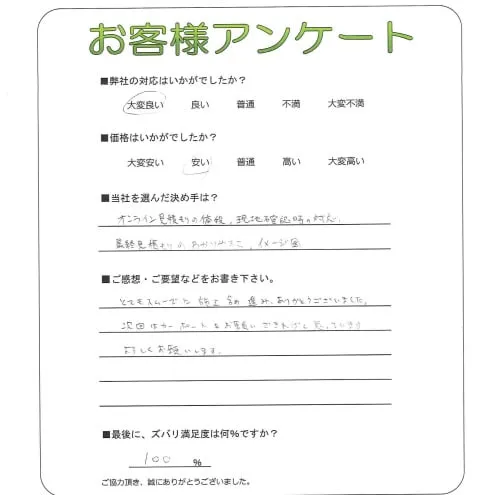 お客様アンケート
■弊社の対応はいかがでしたか？
大変良い 良い 普通 不満 大変不満
■価格はいかがでしたか？
大変安い 安い 普通 高い 大変高い
■当社を選んだ決め手は？
オンライン見積もりの価格、現地確認時の対応、
最終見積もりのわかりやすさ、イメージ図
■ご感想・ご要望などをお書き下さい。
とてもスムーズに施工含め進み、ありがとうございました。
次回はカーポートをお願いできればと思っています
よろしくお願いします。
■最後に、ズバリ満足度は何%ですか？
100 %
ご協力頂き、誠にありがとうございました。